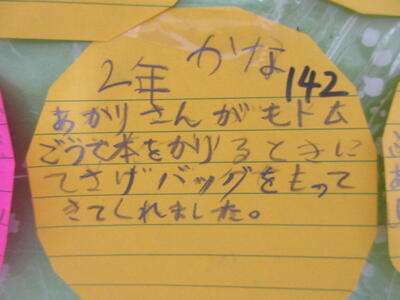 2年 かな
142
あかりさんがもドム
ごうで本をかりるときに
てさげバッグをもって
きてくれました。